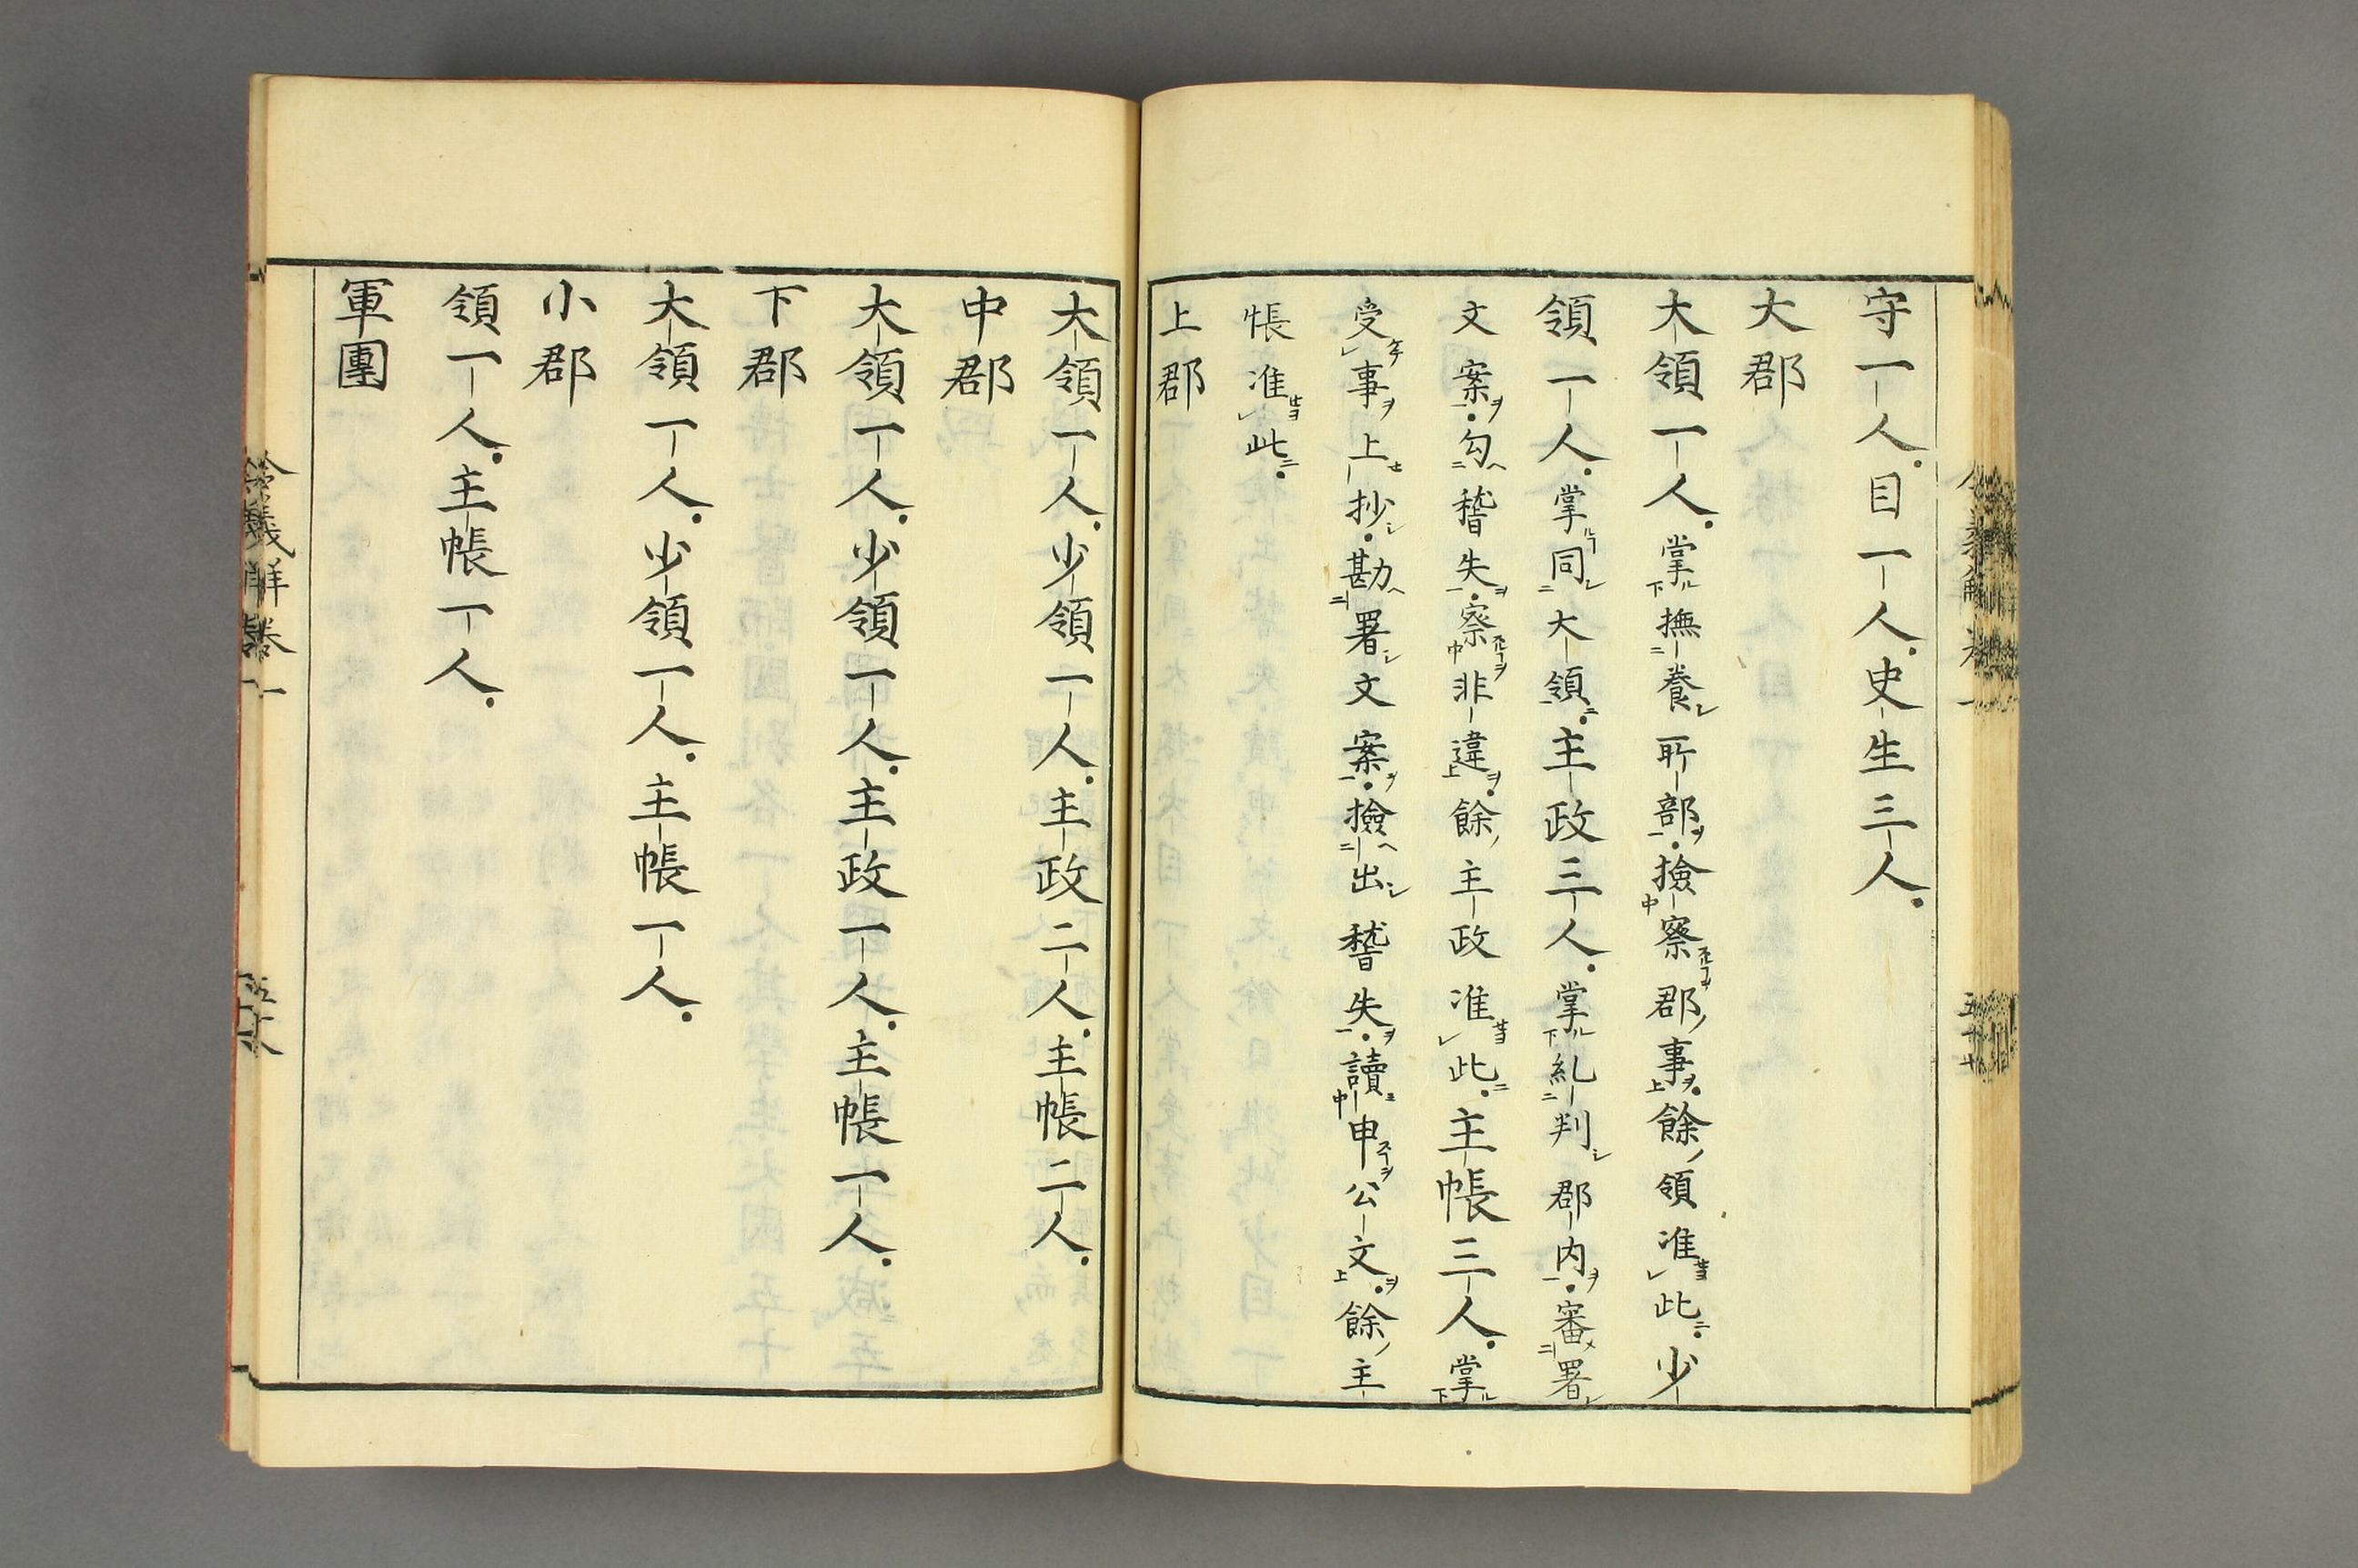 守一人目一人史生三人
大郡
大領一人掌撫養所部撿察郡事餘領准此少
領一人掌同大領主政三人掌糺判郡内審署
文案勾稽失察非違餘主政准此主帳三人掌
受事上抄勘署文案撿出稽失讀申公文餘主
帳准此
上郡
大領一人少領一人主政二人主帳二人
中郡
大領一人少領一人主政一人主帳一人
下郡
大領一人少領一人主帳一人
小郡
領一人主帳一人
軍團